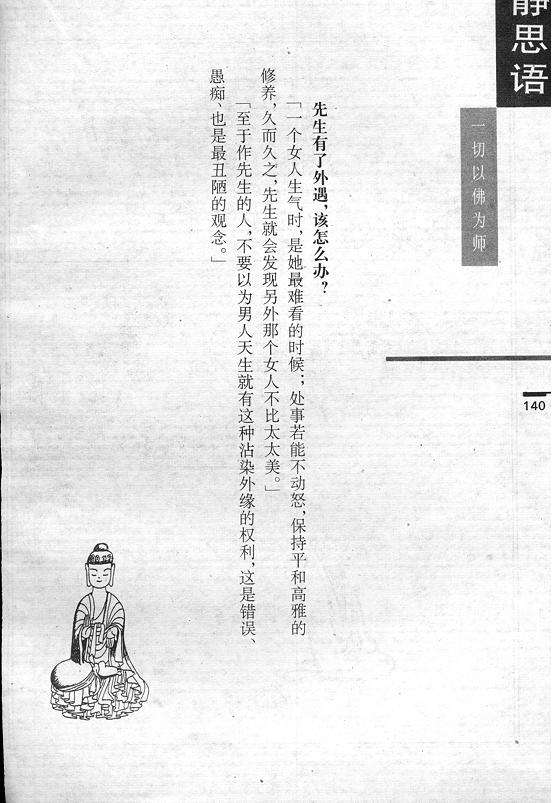 静思语
一切以佛为师
140
先生有了外遇，该怎么办？
「一个女人生气时，是她最难看的时候；处事若能不动怒，保持平和高雅的
修养，久而久之，先生就会发现另外那个女人不比太太美。」
「至于作先生的人，不要以为男人天生就有这种沾染外缘的权利，这是错误、
愚痴、也是最丑陋的观念。」